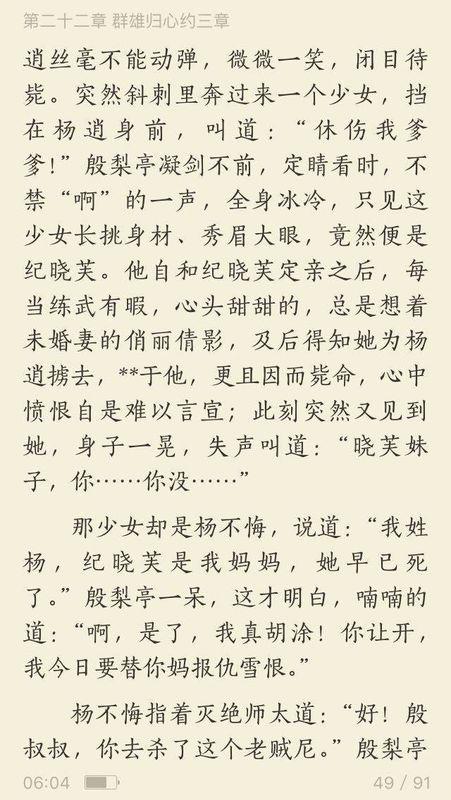 第二十二章 群雄归心约三章
逍丝毫不能动弹，微微一笑，闭目待
毙。突然斜刺里奔过来一个少女，挡
在杨逍身前，叫道：“休伤我爹
爹！”殷梨亭凝剑不前，定睛看时，不
禁“啊”的一声，全身冰冷，只见这
少女长挑身材、秀眉大眼，竟然便是
纪晓芙。他自和纪晓芙定亲之后，每
当练武有暇，心头甜甜的，总是想着
未婚妻的俏丽倩影，及后得知她为杨
逍掳去，**于他，更且因而毙命，心中
愤恨自是难以言宣；此刻突然又见到
她，身子一晃，失声叫道：“晓芙妹
子，你……你没……”
那少女却是杨不悔，说道：“我姓
杨，纪晓芙是我妈妈，她早已死
了。”殷梨亭一呆，这才明白，喃喃的
道：“啊，是了，我真胡涂！你让开，
我今日要替你妈报仇雪恨。”
杨不悔指着灭绝师太道：“好！殷
叔叔，你去杀了这个老贼尼。”殷梨亭
06:04
49 / 91